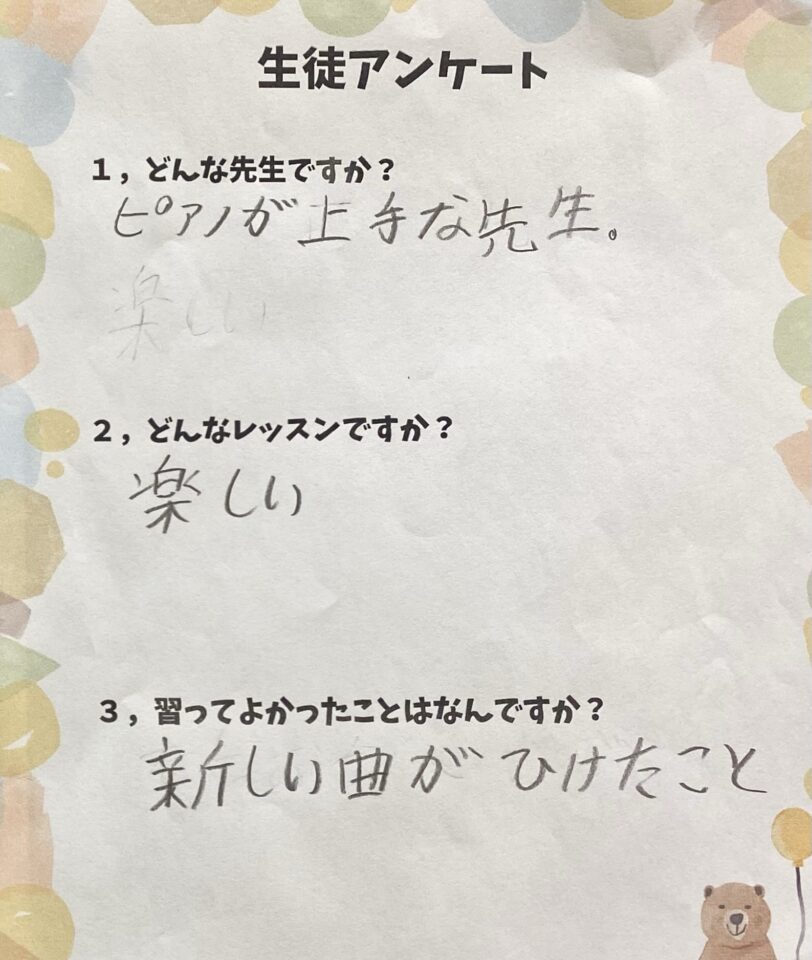 生徒アンケート
1，どんな先生ですか？
ピアノが上手な先生。
楽しい
2，どんなレッスンですか？
楽しい
3，習ってよかったことはなんですか？
新しい曲がひけたこと